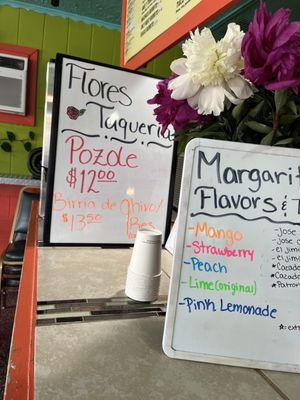 Flores
Taqueria
Pozole
$12.00
Birria de Chivo/
$13.50 Res
Margarit
Flavors &
-Mango
-Strawberry
-Peach
-Lime(original)
-Pink Lemonade
-Jose
-Jose
-el jim
-el Jima
*Cazad
*Cazado
*Patron
*=extr